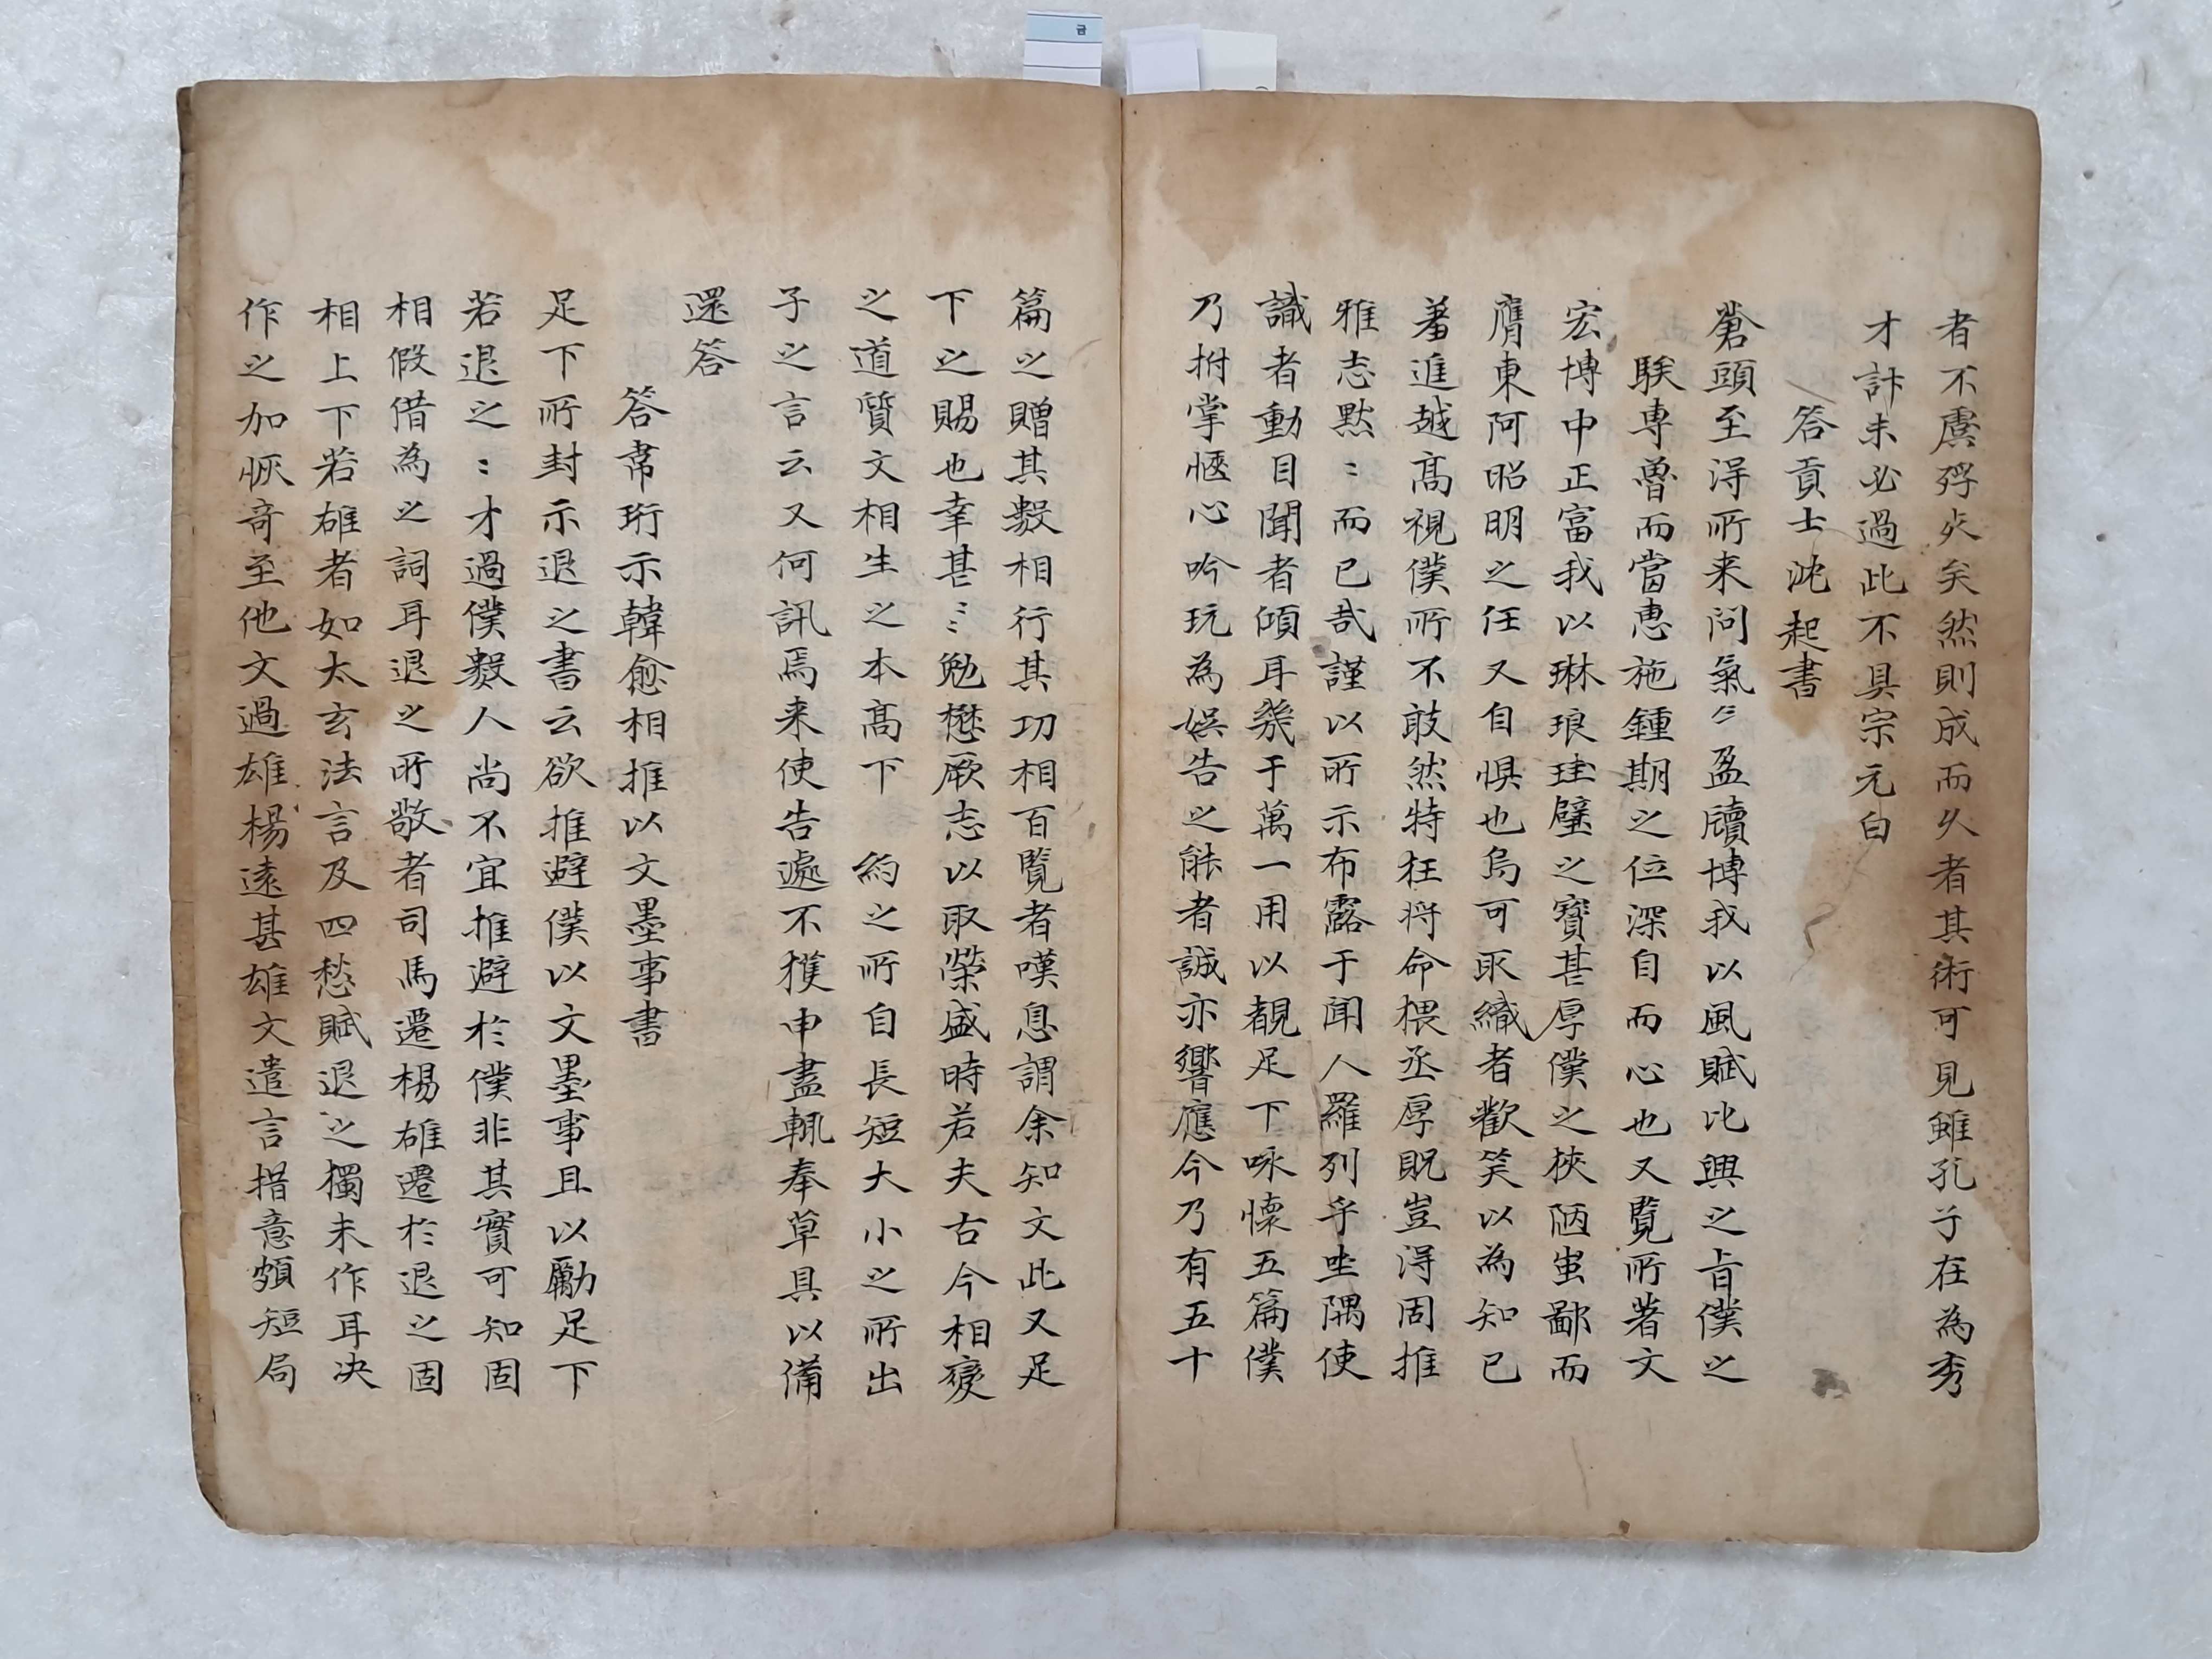 금
者不虞殍火矣然則成而久者其術可見雖孔子在為秀
才計未必過此不具宗元白
答貢士沈起書
蒼頭至得所来問氣〻盈牘博我以風賦比興之旨僕之
騃專魯而當惠施鍾期之位深自而心也又覧所著文
宏博中正富我以琳琅珪璧之寶甚厚僕之狹陋蚩鄙而
膺東阿昭明之任又自惧也烏可取織者歡笑以為知已
羞進越髙視僕所不敢然特枉将命猥丞厚貺豈得固推
雅志黙〻而已㢤謹以所示布露于聞人羅列乎坐隅使
識者動目聞者傾耳幾于萬一用以覩足下咏懷五篇僕
乃拊掌愜心吟玩為娯告之能者誠亦響應今乃有五十
篇之贈其數相行其功相百覧者嘆息謂余知文此又足
下之賜也幸甚〻勉懋厥志以取榮盛時若夫古今相變
之道質文相生之本髙下 約之所自長短大小之所出
子之言云又何訊焉来使告遽不獲申盡輒奉草具以備
還答
答韋珩示韓愈相推以文墨事書
足下所封示退之書云欲推避僕以文墨事且以勵足下
若退之〻才過僕數人尚不宜推避於僕非其實可知固
相假借為之詞耳退之所敬者司馬遷楊雄遷於退之固
相上下若雄者如太玄法言及四愁賦退之獨未作耳决
作之加恢奇至他文過雄楊遠甚雄文遣言措意頗短局